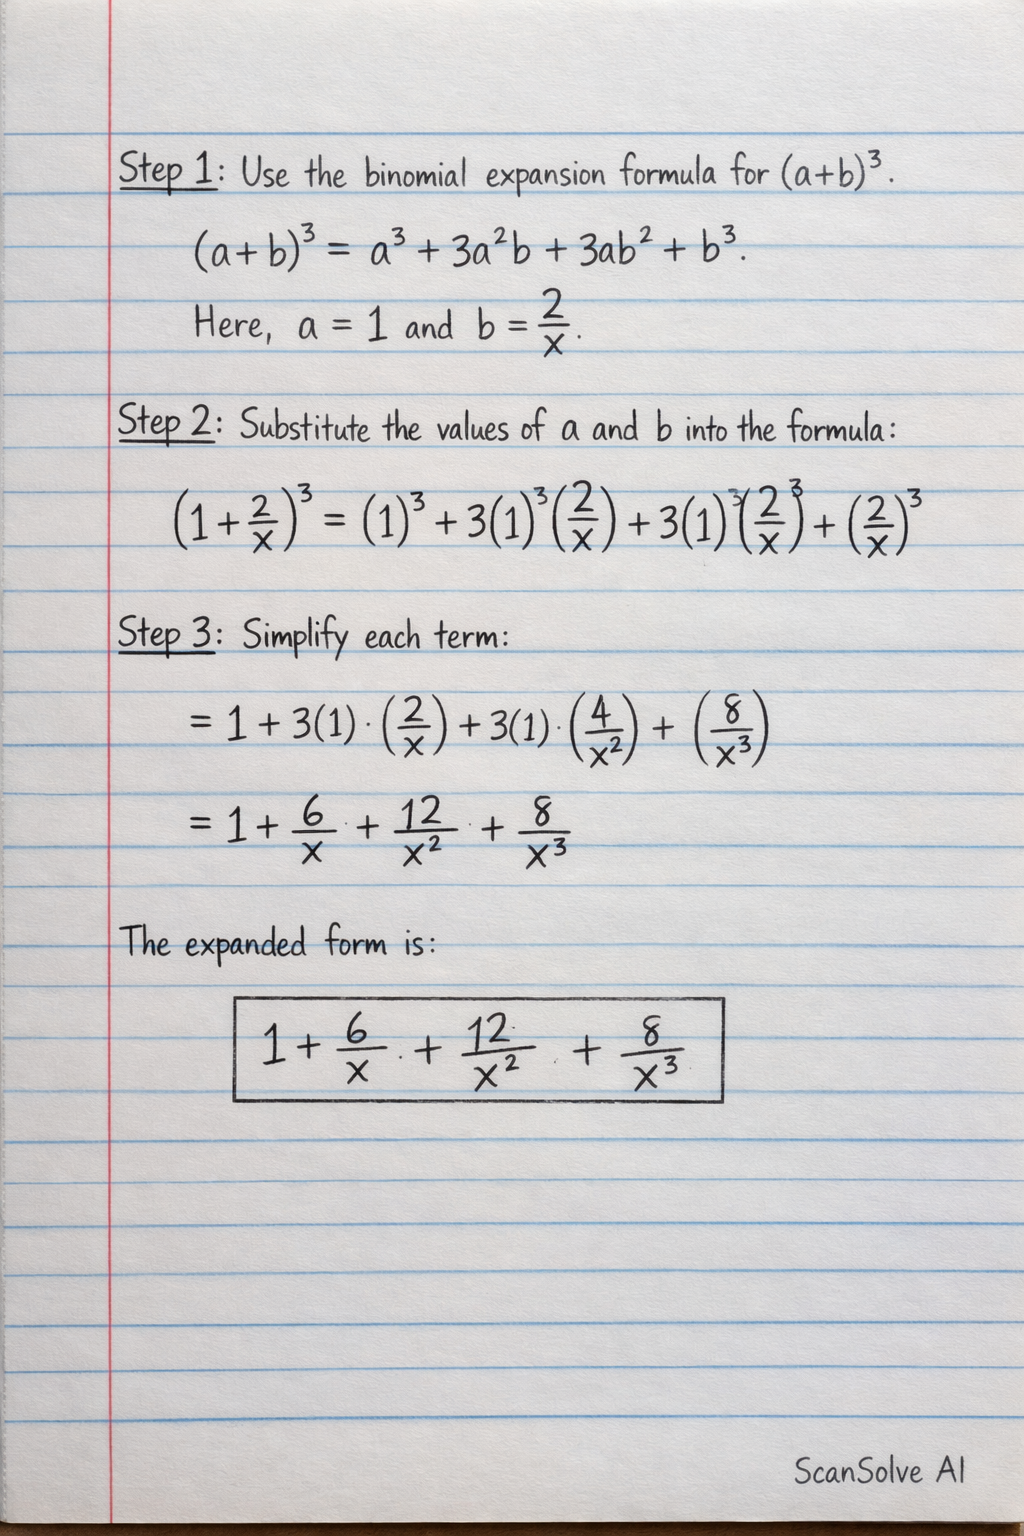 Step 1: Use the binomial expansion formula for (a+b)³.
(a+b)³ = a³ + 3a²b + 3ab² + b³.
Here, a = 1 and b = 2/x.
Step 2: Substitute the values of a and b into the formula:
(1 + 2/x)³ = (1)³ + 3(1)³(2/x) + 3(1)³(2/x)³ + (2/x)³
Step 3: Simplify each term:
= 1 + 3(1) · (2/x) + 3(1) · (4/x²) + (8/x³)
= 1 + 6/x + 12/x² + 8/x³
The expanded form is:
1 + 6/x + 12/x² + 8/x³
ScanSolve AI